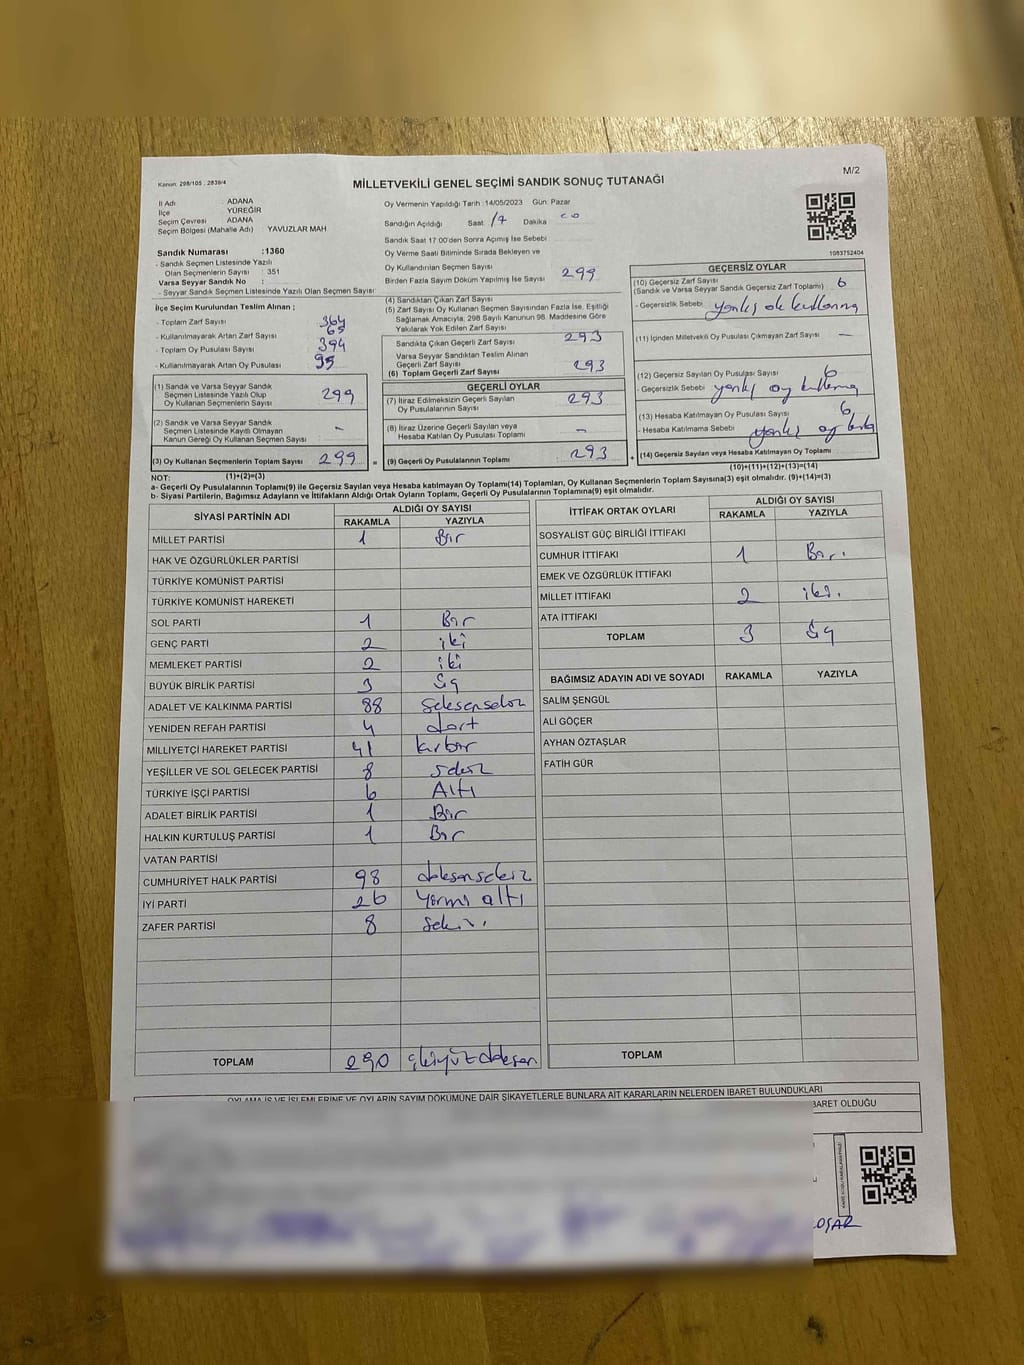 Kanun: 298/105 ; 2839/4
M/2
MİLLETVEKİLİ GENEL SEÇİMİ SANDIK SONUÇ TUTANAĞI
İl Adı : ADANA
İlçe : YÜREĞİR
Seçim Çevresi : ADANA
Seçim Bölgesi (Mahalle Adı) YAVUZLAR MAH
Sandık Numarası :1360
- Sandık Seçmen Listesinde Yazılı
Olan Seçmenlerin Sayısı : 351
Varsa Seyyar Sandık No :
- Seyyar Sandık Seçmen Listesinde Yazılı Olan Seçmen Sayısı:
İlçe Seçim Kurulundan Teslim Alınan ;
- Toplam Zarf Sayısı 364
- Kullanılmayarak Artan Zarf Sayısı 65
- Toplam Oy Pusulası Sayısı 394
- Kullanılmayarak Artan Oy Pusulası 95
(1) Sandık ve Varsa Seyyar Sandık
Seçmen Listesinde Yazılı Olup
Oy Kullanan Seçmenlerin Sayısı 299
(2) Sandık ve Varsa Seyyar Sandık
Seçmen Listesinde Kayıtlı Olmayan
Kanun Gereği Oy Kullanan Seçmen Sayısı -
(3) Oy Kullanan Seçmenlerin Toplam Sayısı 299 =
(1)+(2)=(3)
Oy Vermenin Yapıldığı Tarih : 14/05/2023 Gün: Pazar
Sandığın Açıldığı Saat 17 Dakika 00
Sandık Saat 17 00'den Sonra Açılmış İse Sebebi
Oy Verme Saati Bitiminde Sırada Bekleyen ve
Oy Kullandırılan Seçmen Sayısı
Birden Fazla Sayım Döküm Yapılmış İse Sayısı
(4) Sandıktan Çıkan Zarf Sayısı 299
(5) Zarf Sayısı Oy Kullanan Seçmen Sayısından Fazla İse, Eşitliği
Sağlamak Amacıyla, 298 Sayılı Kanunun 98. Maddesine Göre
Yakılarak Yok Edilen Zarf Sayısı
Sandıkta Çıkan Geçerli Zarf Sayısı 293
Varsa Seyyar Sandıktan Teslim Alınan
Geçerli Zarf Sayısı
(6) Toplam Geçerli Zarf Sayısı 293
GEÇERLİ OYLAR
(7) İtiraz Edilmeksizin Geçerli Sayılan
Oy Pusulalarının Sayısı 293
(8) İtiraz Üzerine Geçerli Sayılan veya
Hesaba Katılan Oy Pusulası Toplamı -
(9) Geçerli Oy Pusulalarının Toplamı 293 +
1083752404
GEÇERSİZ OYLAR
(10) Geçersiz Zarf Sayısı
(Sandık ve Varsa Seyyar Sandık Geçersiz Zarf Toplamı) 6
- Geçersizlik Sebebi
(11) İçinden Milletvekili Oy Pusulası Çıkmayan Zarf Sayısı -
(12) Geçersiz Sayılan Oy Pusulası Sayısı 6
- Geçersizlik Sebebi yanlış oy kullanma
(13) Hesaba Katılmayan Oy Pusulası Sayısı 6
- Hesaba Katılmama Sebebi yanlış oy
(14) Geçersiz Sayılan veya Hesaba Katılmayan Oy Toplamı
(10)+(11)+(12)+(13)=(14)
NOT:
a- Geçerli Oy Pusulalarının Toplamı(9) ile Geçersiz Sayılan veya Hesaba Katılmayan Oy Toplamı(14) Toplamları, Oy Kullanan Seçmenlerin Toplam Sayısına(3) eşit olmalıdır. (9)+(14)=(3)
b- Siyasi Partilerin, Bağımsız Adayların ve İttifakların Aldığı Ortak Oyların Toplamı, Geçerli Oy Pusulalarının Toplamına(9) eşit olmalıdır.
SİYASİ PARTİNİN ADI ALDIĞI OY SAYISI
RAKAMLA YAZIYLA
MİLLET PARTİSİ 1 Bir
HAK VE ÖZGÜRLÜKLER PARTİSİ
TÜRKİYE KOMÜNİST PARTİSİ
TÜRKİYE KOMÜNİST HAREKETİ
SOL PARTİ 1 Bir
GENÇ PARTİ 2 iki
MEMLEKET PARTİSİ 2 iki
BÜYÜK BİRLİK PARTİSİ 3 üç
ADALET VE KALKINMA PARTİSİ 88 seksensekiz
YENİDEN REFAH PARTİSİ 4 dört
MİLLİYETÇİ HAREKET PARTİSİ 41 kırkbir
YEŞİLLER VE SOL GELECEK PARTİSİ 8 sekiz
TÜRKİYE İŞÇİ PARTİSİ 6 Altı
ADALET BİRLİK PARTİSİ 1 Bir
HALKIN KURTULUŞ PARTİSİ 1 Bir
VATAN PARTİSİ
CUMHURİYET HALK PARTİSİ 98 doksansekiz
İYİ PARTİ 26 yirmi altı
ZAFER PARTİSİ 8 sekiz
TOPLAM 290 ikiyüzdoksan
İTTİFAK ORTAK OYLARI ALDIĞI OY SAYISI
RAKAMLA YAZIYLA
SOSYALİST GÜÇ BİRLİĞİ İTTİFAKI
CUMHUR İTTİFAKI 1 Bir.
EMEK VE ÖZGÜRLÜK İTTİFAKI
MİLLET İTTİFAKI 2 iki.
ATA İTTİFAKI
TOPLAM 3 üç
BAĞIMSIZ ADAYIN ADI VE SOYADI RAKAMLA YAZIYLA
SALİM ŞENGÜL
ALİ GÖÇER
AYHAN ÖZTAŞLAR
FATİH GÜR
TOPLAM
OYLAMA İŞ VE İŞLEMLERİNE VE OYLARIN SAYIM DÖKÜMÜNE DAİR ŞİKAYETLERLE BUNLARA AİT KARARLARIN NELERDEN İBARET BULUNDUKLARI
BARET OLDUĞU